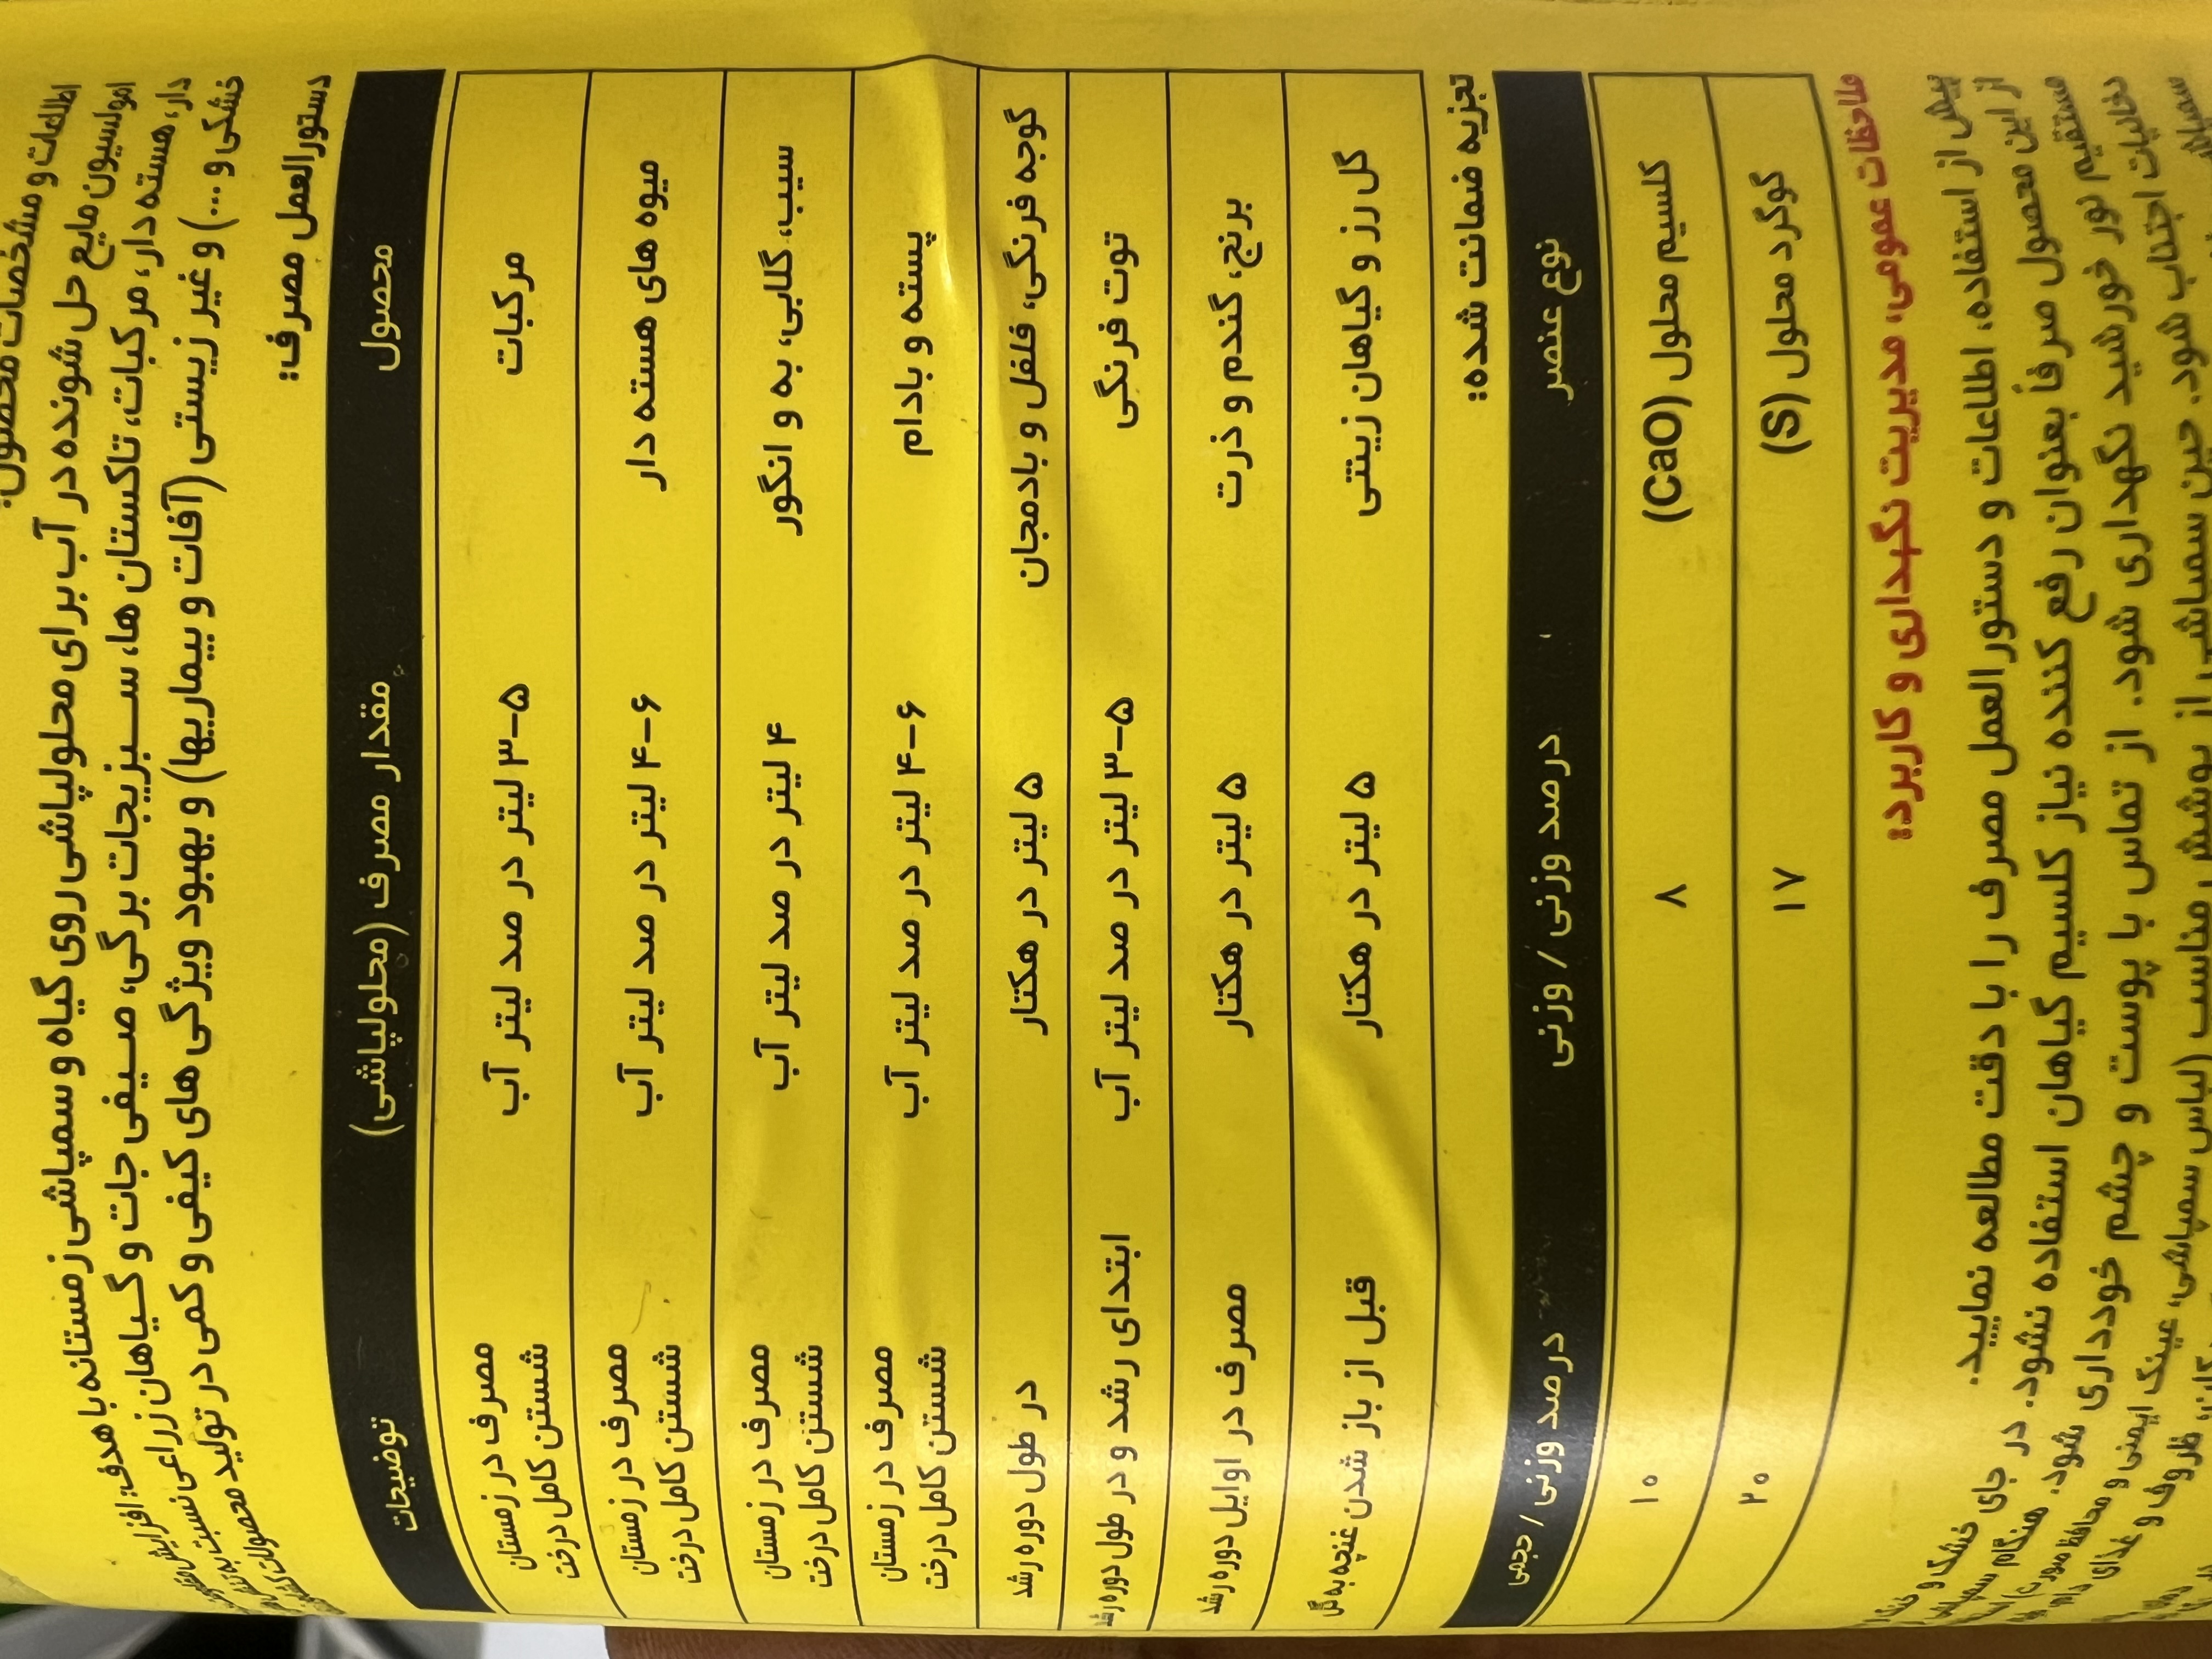 اطلاعات و مشخصات محصول:
امولسیون مایع حل شونده در آب برای محلولپاشی روی گیاه و سمپاشی زمستانه با هدف: افزایش
دار، هسته دار، مرکبات، تاکستان ها، سبزیجات برگی، صیفی جات و گیاهان زراعی نسبت به
خشکی و ...) و غیر زیستی (آفات و بیماریها) و بهبود ویژگی های کیفی و کمی در تولید محصولات
دستورالعمل مصرف:
محصول مقدار مصرف (محلولپاشی) توضیحات
مرکبات ۳-۵ لیتر در صد لیتر آب مصرف در زمستان
شستن کامل درخت
میوه های هسته دار ۴-۶ لیتر در صد لیتر آب مصرف در زمستان
شستن کامل درخت
سیب، گلابی، به و انگور ۴ لیتر در صد لیتر آب مصرف در زمستان
شستن کامل درخت
پسته و بادام ۴-۶ لیتر در صد لیتر آب مصرف در زمستان
شستن کامل درخت
گوجه فرنگی، فلفل و بادمجان ۵ لیتر در هکتار در طول دوره رشد
توت فرنگی ۳-۵ لیتر در صد لیتر آب ابتدای رشد و در طول دوره رشد
برنج، گندم و ذرت ۵ لیتر در هکتار مصرف در اوایل دوره رشد
گل رز و گیاهان زینتی ۵ لیتر در هکتار قبل از باز شدن غنچه به گل
تجزیه ضمانت شده:
نوع عنصر درصد وزنی / وزنی درصد وزنی / حجمی
کلسیم محلول (CaO) ۸ ۱۰
گوگرد محلول (S) ۱۷ ۲۰
ملاحظات عمومی، مدیریت نگهداری و کاربرد:
پیش از استفاده، اطلاعات و دستورالعمل مصرف را با دقت مطالعه نمایید.
از این محصول صرفا بعنوان رفع کننده نیاز کلسیم گیاهان استفاده نشود. در جای خشک و
نور خورشید نگهداری شود. از تماس با پوست و چشم خودداری شود.